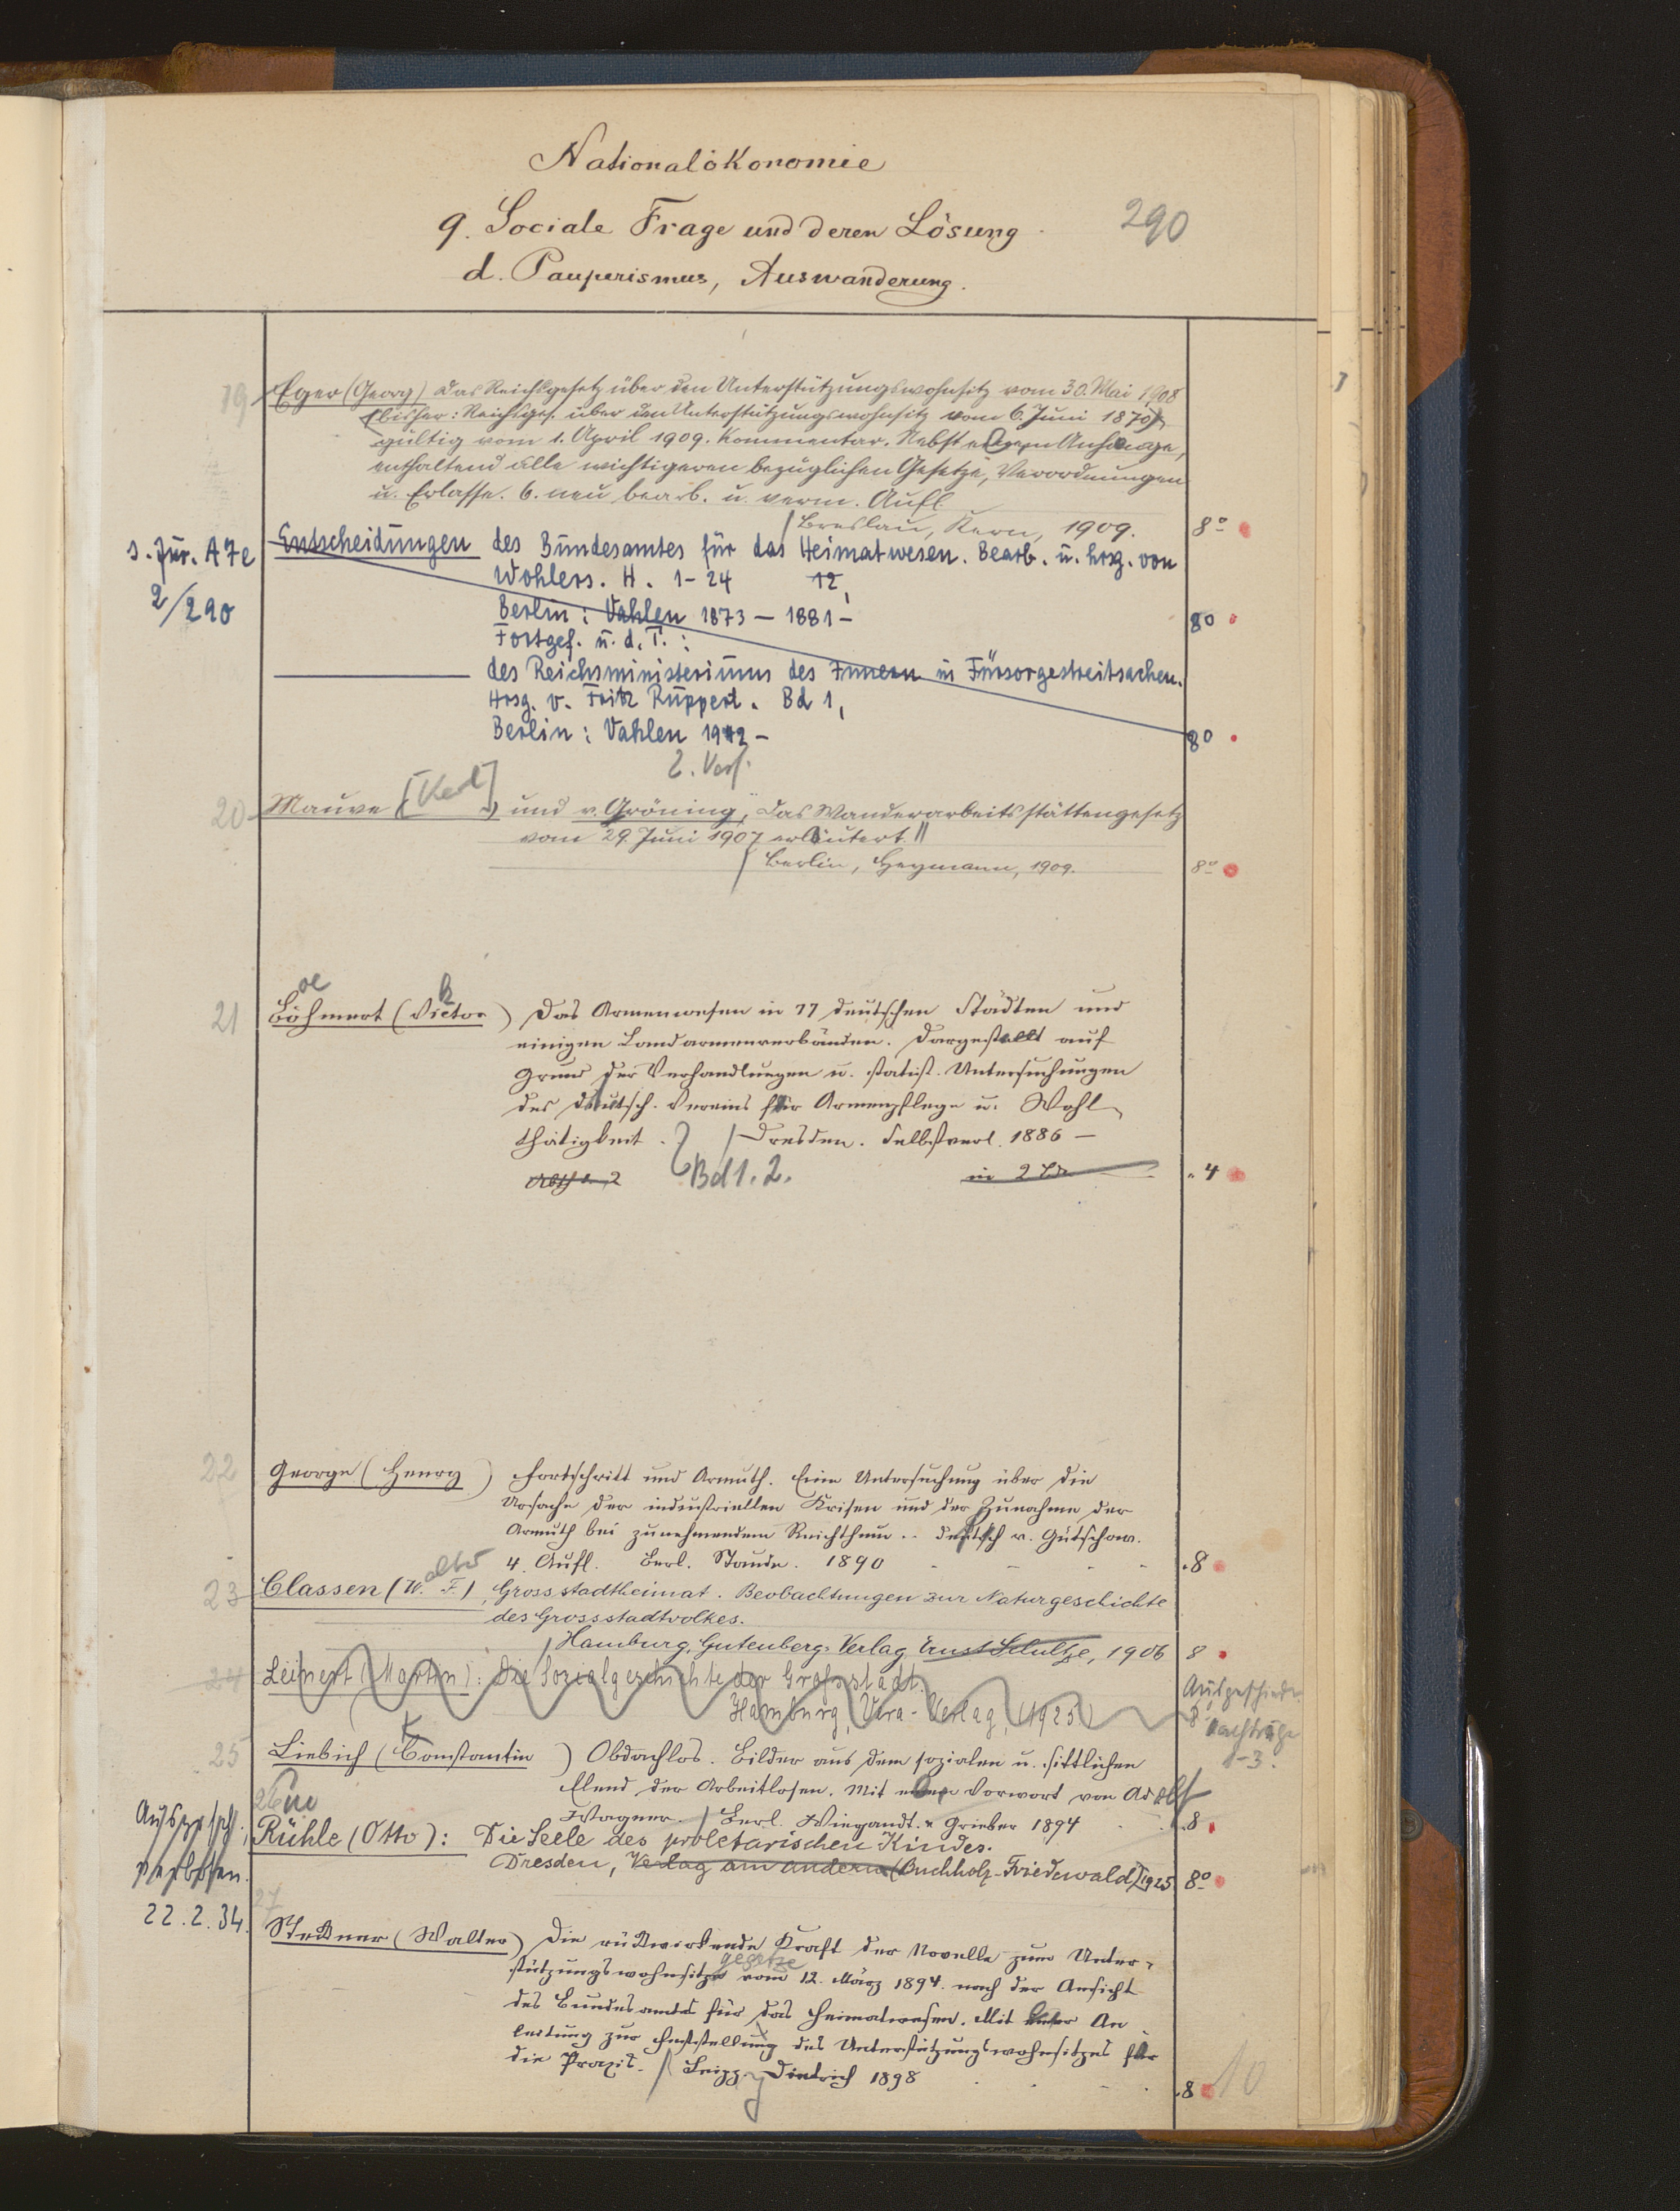 Nationalökonomie
9. Sociale Frage und deren Lösung
290
d. Pauperismus, Auswanderung.
19 Eger (Georg) Das Reichsgesetz über den Unterstützungswohnsitz vom 30. Mai 1908
(bisher: Reichsges. über den Unterstützungswohnsitz vom 6. Juni 1870)
gültig vom 1. April 1909. Kommentar. Nebst einem Anhange,
enthaltend alle wichtigeren bezüglichen Gesetze, Verordnungen
u. Erlasse. 6. neu bearb. u. verm. Aufl.
Breslau, Kern, 1909. 8°
s. Jur. A 7e
2/290
Entscheidungen des Bundesamtes für das Heimatwesen. Bearb. u. hrsg. von
Wohlers. H. 1-24 12,
Berlin: Vahlen 1873 – 1881 – 80
Fortges. u. d. T. :
——— des Reichsministeriums des Innern in Fürsorgestreitsachen.
Hrsg. v. Fritz Ruppert. Bd 1,
Berlin: Vahlen 1942 – 80
2. Verf.
20 Mauve [Karl] und v. Gröning, Das Wanderarbeitsstättengesetz
vom 29. Juni 1907 erläutert
Berlin, Heymann, 1909. 8°
oe k
21 Böhmert (Victor) Das Armenwesen in 77 deutschen Städten und
einigen Landarmenverbänden. Dargestellt auf
Grund der Verhandlungen u. statist. Untersuchungen
des deutsch. Vereins für Armenpflege u. Wohl
thätigkeit. Dresden. Selbstverl. 1886 –
Abth 1. 2 Bd 1. 2. in 2 Bd. 4
22 George (Henry) Fortschritt und Armuth. Eine Untersuchung über die
Ursache der industriellen Krisen und der Zunahme der
Armuth bei zunehmendem Reichthum. . deutsch v. Gütschow.
4. Aufl. Berl. Staude. 1890 8
alter
23 Classen (W. F.), Grossstadtheimat. Beobachtungen zur Naturgeschichte
des Grossstadtvolkes.
Hamburg, Gutenberg-Verlag Ernst Schultze, 1906 8
24 Leinert (Martin): Die Sozialgeschichte der Großstadt.
Hamburg, Vera-Verlag, (1925) 8
Ausgeschieden
Nachträge
1-3.
K
25 Liebich (Constantin) Obdachlos. Bilder aus dem sozialen u. sittlichen
Elend der Arbeitlosen. Mit einem Vorwort von Adolf
Wagner. Berl. Wiegandt u. Grieben 1894 8
26
Rühle (Otto): Die Seele des proletarischen Kindes.
Dresden, Verlag am andern (Buchholz-Friedewald) 1925 8°
verboten.
22. 2. 34.
27
Stettner (Walter) Die rückwirkende Kraft der Novelle zum Unter-
gesetze
stützungswohnsitze vom 12. März 1894. nach der Ansicht
des Bundesamtes für das Heimatwesen. Mit einer An
leitung zur Feststellung des Unterstützungswohnsitzes für
die Praxis. Leipz. Dietrich 1898 8
10